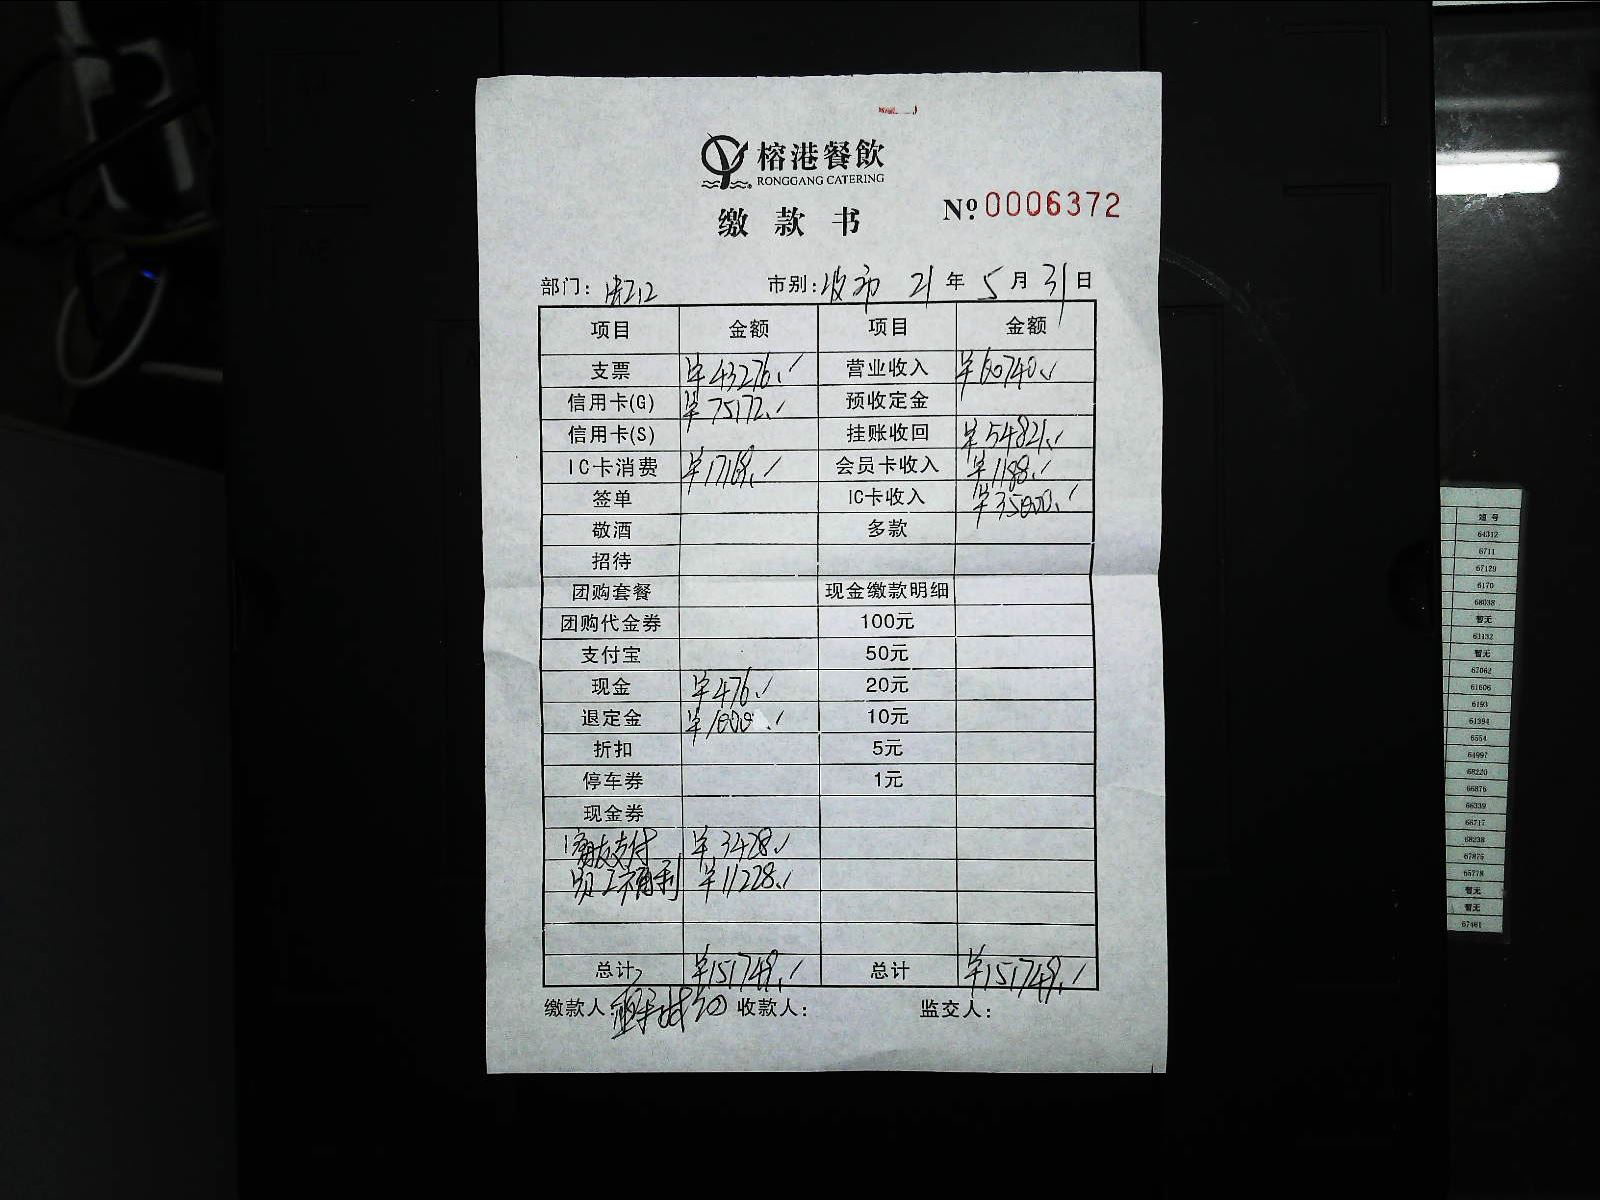 榕港餐飲
RONGGANG CATERING
缴款书
Nº 0006372
部门: 市别: 夜市 21年 5月 31日
项目 金额 项目 金额
支票 ¥43276.✓ 营业收入 ¥60740.✓
信用卡(G) ¥75172.✓ 预收定金
信用卡(S) 挂账收回 ¥54821.✓
IC卡消费 ¥17169.✓ 会员卡收入 ¥1188.✓
签单 IC卡收入 ¥35000.✓
敬酒 多款
招待
团购套餐 现金缴款明细
团购代金券 100元
支付宝 50元
现金 ¥476.✓ 20元
退定金 ¥1000.✓ 10元
折扣 5元
停车券 1元
现金券
支付 ¥3428.✓
员工福利 ¥11228.✓
总计 ¥151749.✓ 总计 ¥151749.✓
缴款人: 收款人: 监交人:
号
64312
6711
67129
6170
68038
暂无
63132
暂无
67062
61606
6193
61394
6554
64997
68220
66876
66339
66717
68238
67875
65778
暂无
暂无
67461